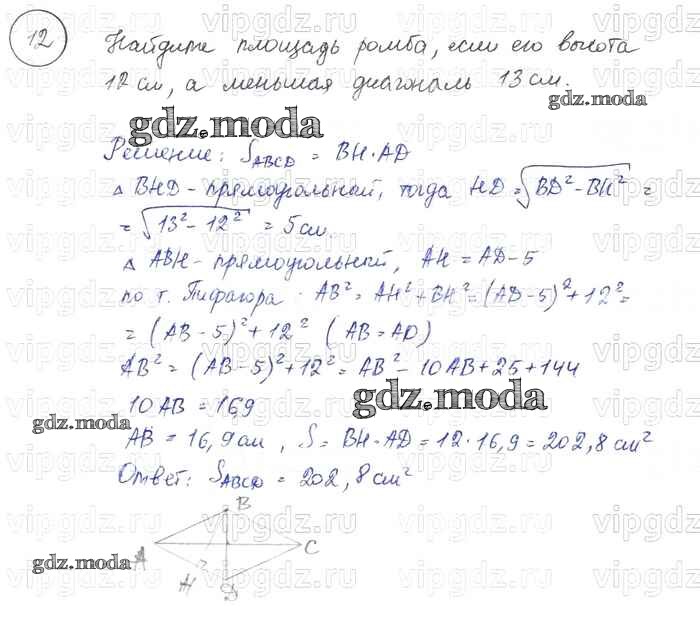 12
Найдите площадь ромба, если его высота
12 см, а меньшая диагональ 13 см.
gdz.moda
gdz.moda
Решение: S_ABCD = BH·AD
△ BHD - прямоугольный, тогда HD = √(BD² - BH²) =
= √(13² - 12²) = 5 см.
△ ABH - прямоугольный, AH = AD - 5
по т. Пифагора: AB² = AH² + BH² = (AD - 5)² + 12² =
= (AB - 5)² + 12² (AB = AD)
AB² = (AB - 5)² + 12² = AB² - 10AB + 25 + 144
gdz.moda
10 AB = 169
gdz.moda
AB = 16,9 см, S = BH·AD = 12·16,9 = 202,8 см²
Ответ: S_ABCD = 202,8 см²
B
gdz.moda
A
C
gdz.moda
H
D
vipgdz.ru